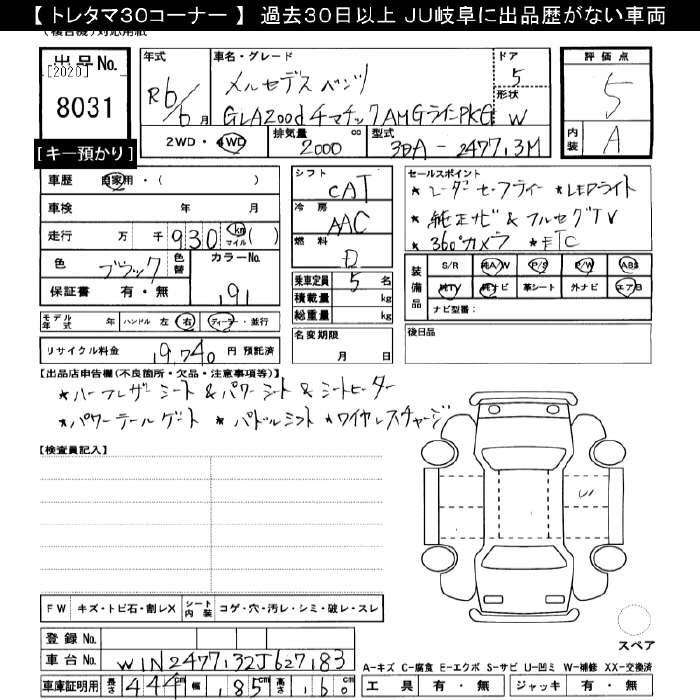 【 トレタマ30コーナー 】 過去30日以上 JU岐阜に出品歴がない車両
出品No.
[2020]
8031
[キー預かり]
年式
R6/6月
車名・グレード
メルセデスベンツ
GLA200dチマチックAMGラインPKG
ドア
5
形状
W
2WD・4WD
排気量
2000 cc
型式
3DA-247713M
評価点
5
内装
A
車歴 自家用・( )
車検 年 月
走行 万 千 930 km マイル ( )
色 ブラック 色替 カラーNo.
保証書 有・無 191
モデル年式 ハンドル 左 右 ディーラー・並行
リサイクル料金 19,740 円 預託済
シフト
CAT
冷房
AAC
燃料
D
乗車定員 5 名
積載量 kg
総重量 kg
名変期限
月 日
セールスポイント
*レーダーセーフティー *LEDライト
*純正ナビ&フルセグTV
*360°カメラ *ETC
装備品
S/R 純A/W P/S P/W ABS
純TV 純ナビ 革シート 外ナビ エアB
ナビ型番:
後日品
【出品店申告欄(不良箇所・欠品・注意事項等)】
*ハーフレザーシート&パワーシート&シートヒーター
*パワーテールゲート *パドルシフト *ワイヤレスチャージ
【検査員記入】
U
FW キズ・トビ石・割レX シート内装 コゲ・穴・汚レ・シミ・破レ・スレ
スペア
登録No.
車台No. W1N2477132J627183
A-キズ C-腐食 E-エクボ S-サビ U-凹ミ W-補修 XX-交換済
車庫証明用 長さ 444cm 幅 185cm 高さ 160cm
工具 有・無 ジャッキ 有・無